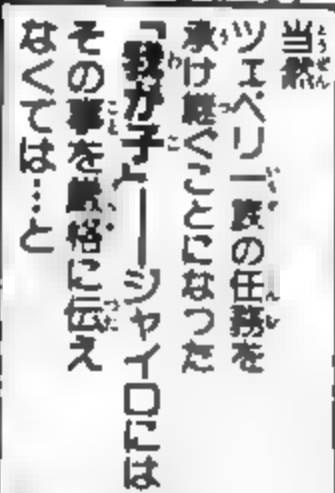 当然
ツェペリ一族の任務を
承け継ぐことになった
「我が子」――シャイロには
その事を厳格に伝え
なくては…と